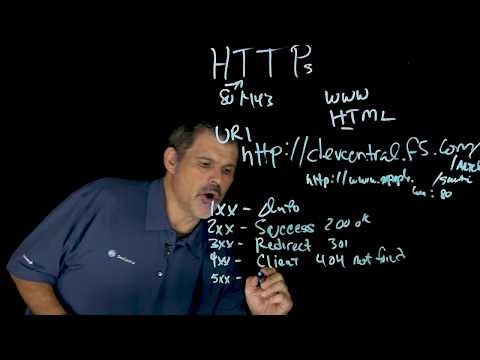 HTTPs
80 443
WWW
HTML
URI
http://devcentral.f5.com/
http://www.
com:80
1xx - Info
2xx - Success 200 ok
3xx - Redirect 301
4xx - Client 404 not found
5xx -